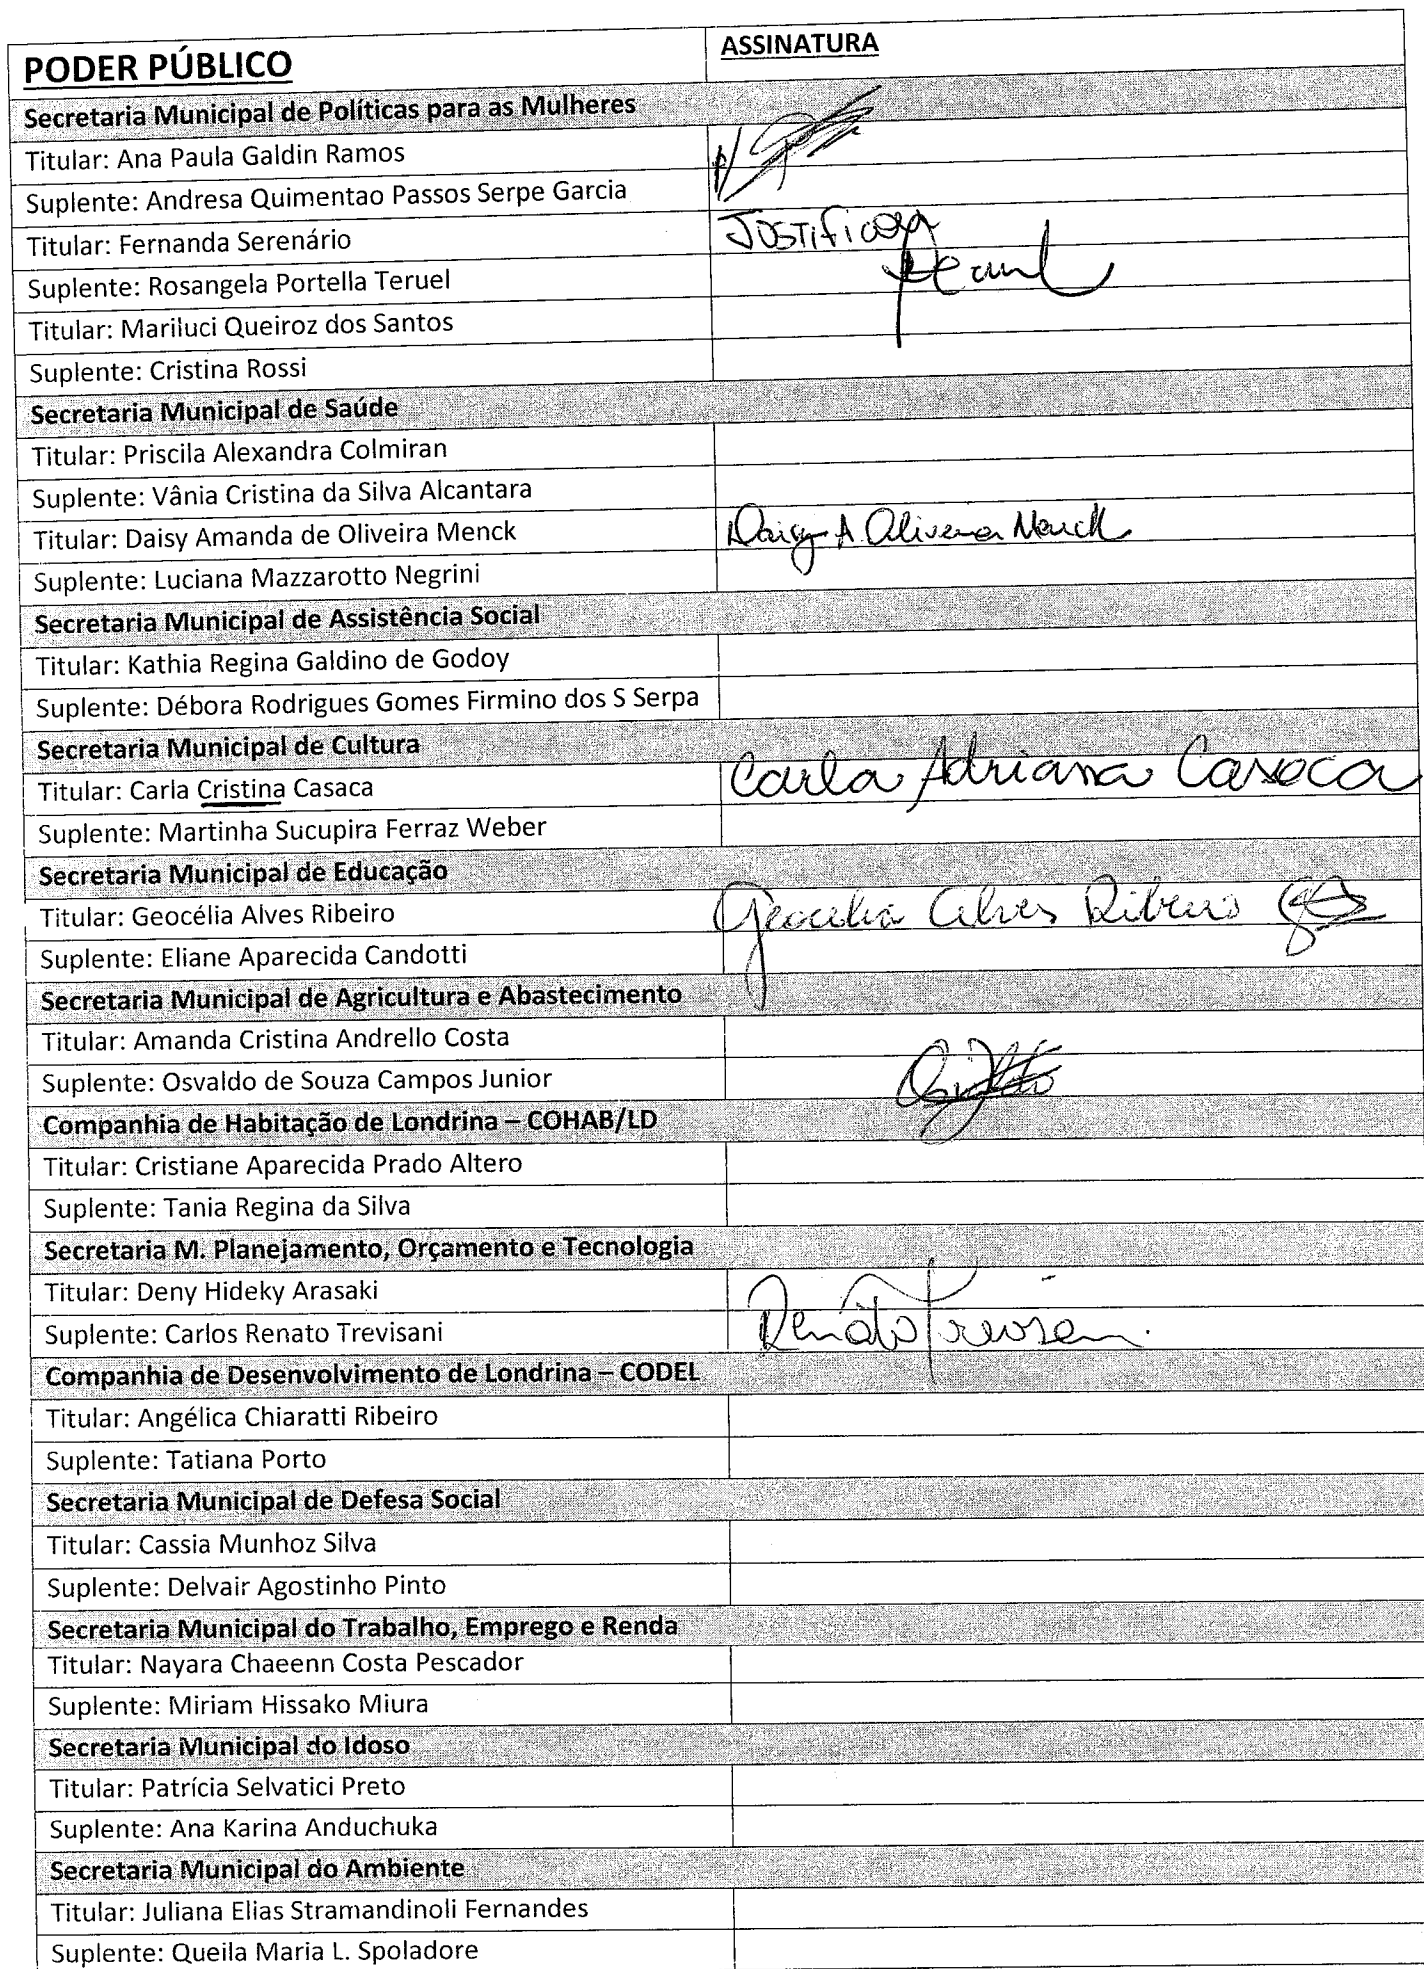 PODER PÚBLICO ASSINATURA
Secretaria Municipal de Políticas para as Mulheres
Titular: Ana Paula Galdin Ramos P/
Suplente: Andresa Quimentao Passos Serpe Garcia
Titular: Fernanda Serenário
Suplente: Rosangela Portella Teruel
Titular: Mariluci Queiroz dos Santos
Suplente: Cristina Rossi
Secretaria Municipal de Saúde
Titular: Priscila Alexandra Colmiran
Suplente: Vânia Cristina da Silva Alcantara
Titular: Daisy Amanda de Oliveira Menck Daisy A Oliveira Menck
Suplente: Luciana Mazzarotto Negrini
Secretaria Municipal de Assistência Social
Titular: Kathia Regina Galdino de Godoy
Suplente: Débora Rodrigues Gomes Firmino dos S Serpa
Secretaria Municipal de Cultura
Titular: Carla Cristina Casaca Carla Adriana Casaca
Suplente: Martinha Sucupira Ferraz Weber
Secretaria Municipal de Educação
Titular: Geocélia Alves Ribeiro Geocelia Alves Ribeiro
Suplente: Eliane Aparecida Candotti
Secretaria Municipal de Agricultura e Abastecimento
Titular: Amanda Cristina Andrello Costa
Suplente: Osvaldo de Souza Campos Junior
Companhia de Habitação de Londrina – COHAB/LD
Titular: Cristiane Aparecida Prado Altero
Suplente: Tania Regina da Silva
Secretaria M. Planejamento, Orçamento e Tecnologia
Titular: Deny Hideky Arasaki
Suplente: Carlos Renato Trevisani Renato
Companhia de Desenvolvimento de Londrina – CODEL
Titular: Angélica Chiaratti Ribeiro
Suplente: Tatiana Porto
Secretaria Municipal de Defesa Social
Titular: Cassia Munhoz Silva
Suplente: Delvair Agostinho Pinto
Secretaria Municipal do Trabalho, Emprego e Renda
Titular: Nayara Chaeenn Costa Pescador
Suplente: Miriam Hissako Miura
Secretaria Municipal do Idoso
Titular: Patrícia Selvatici Preto
Suplente: Ana Karina Anduchuka
Secretaria Municipal do Ambiente
Titular: Juliana Elias Stramandinoli Fernandes
Suplente: Queila Maria L. Spoladore